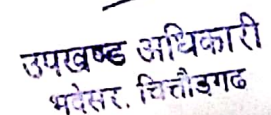 उपखण्ड अधिकारी
भदेसर, चित्तौडगढ